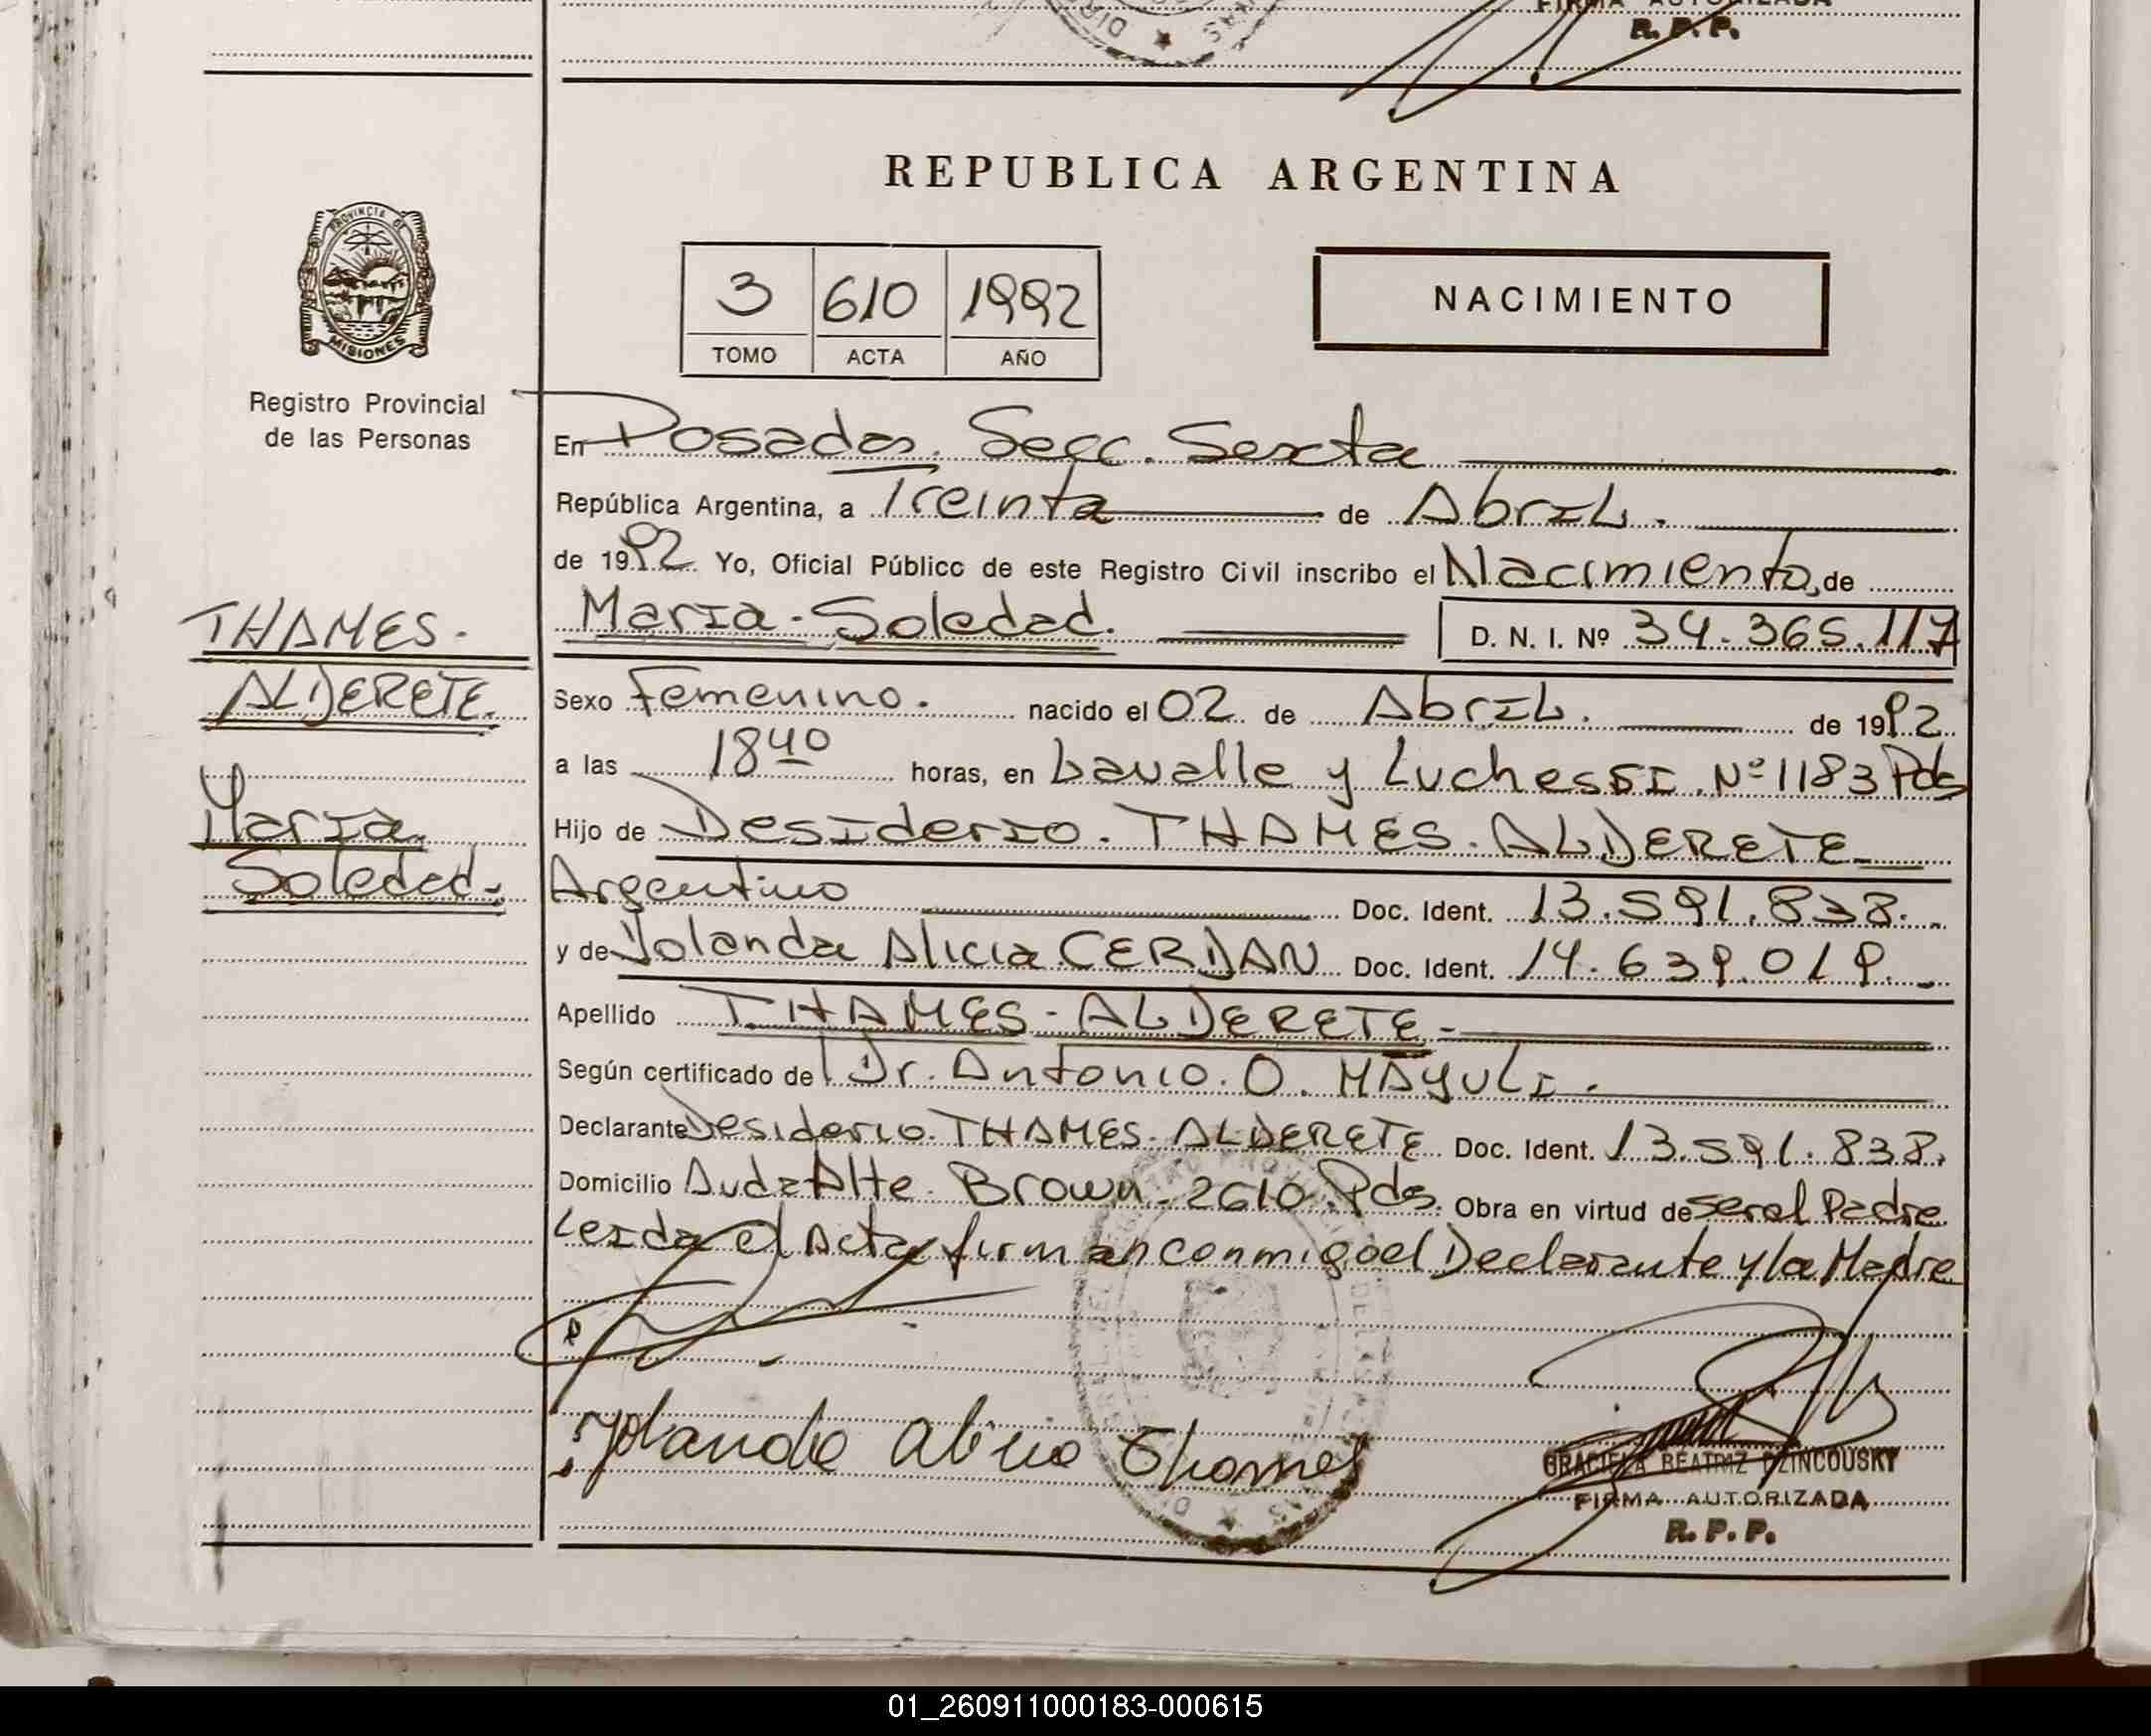 FIRMA AUTORIZADA
R. P. P.
REPUBLICA ARGENTINA
PROVINCIA DE
MISIONES
Registro Provincial
de las Personas
3 610 1992
TOMO ACTA AÑO
NACIMIENTO
En Posadas. Secc. Sexta
República Argentina, a Treinta de Abril.
de 1992 Yo, Oficial Público de este Registro Civil inscribo el Nacimiento, de
Maria-Soledad. D. N. I. Nº 34.365.117
THAMES-
ALDERETE.
Maria
Soledad.
Sexo Femenino. nacido el 02 de Abril. de 1992
a las 18 40 horas, en Lavalle y Luchessi. Nº 1183 Pds
Hijo de Desiderio. THAMES-ALDERETE
Argentino Doc. Ident. 13.591.838.
y de Yolanda Alicia CERDAN Doc. Ident. 14.639.019.
Apellido THAMES-ALDERETE-
Según certificado de Dr. Antonio. O. MAYULI.
Declarante Desiderio. THAMES-ALDERETE Doc. Ident. 13.591.838.
Domicilio Avda Alte. Brown. 2610 Pds. Obra en virtud de ser el Padre
Leida el Acta firman conmigo el Declarante y la Madre
Yolanda Alicia Thames
GRACIELA BEATRIZ OZINCOUSKY
FIRMA AUTORIZADA
R. P. P.
01_260911000183-000615